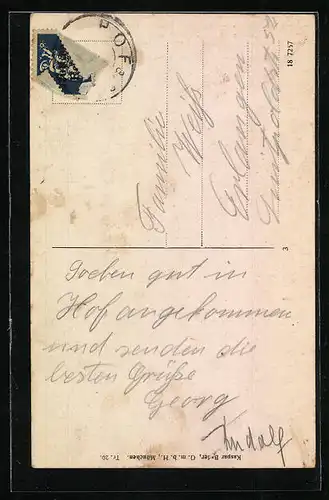 HOF
18 7257
Familie
Weiß
Erlangen
3
Soeben gut in
Hof angekommen
und senden die
besten Grüße
Georg
Rudolf
Kaspar G. m. b. H., München. Tr. 20.